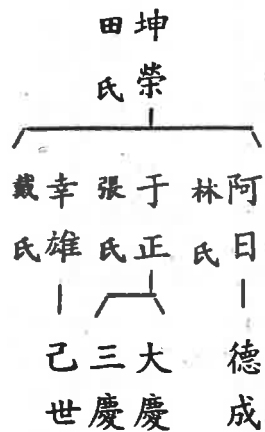 坤榮
田氏
阿日
林氏
于正
張氏
幸雄
戴氏
德成
大慶
三慶
己世